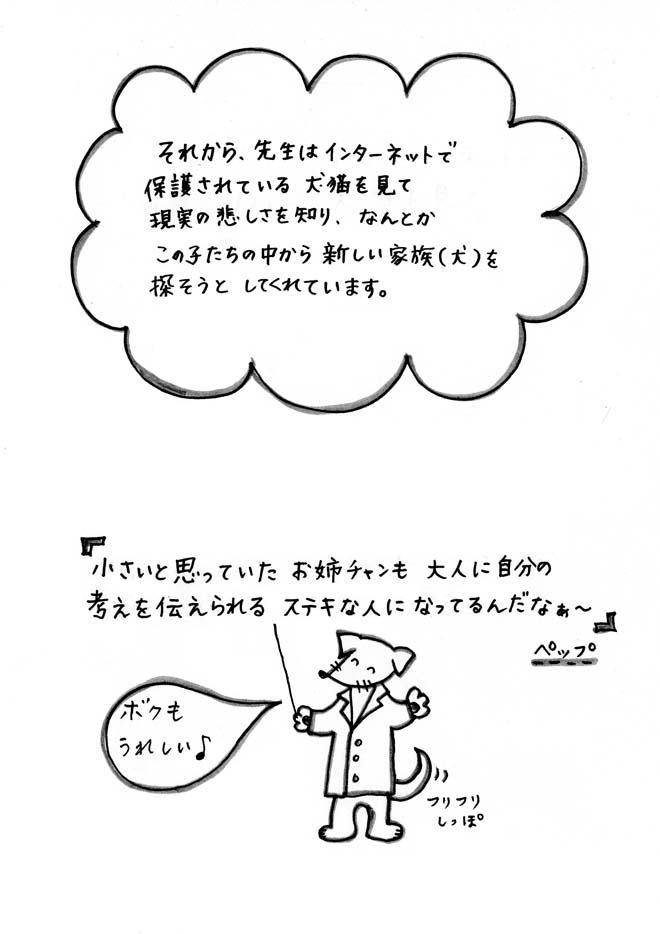 それから、先生はインターネットで
保護されている 犬猫を見て
現実の悲しさを知り、なんとか
この子たちの中から 新しい家族(犬)を
探そうと してくれています。
『小さいと思っていた お姉チャンも 大人に自分の
考えを伝えられる ステキな人に なってるんだなぁ〜』
ペップ
ボクも
うれしい♪
フリフリ
しっぽ